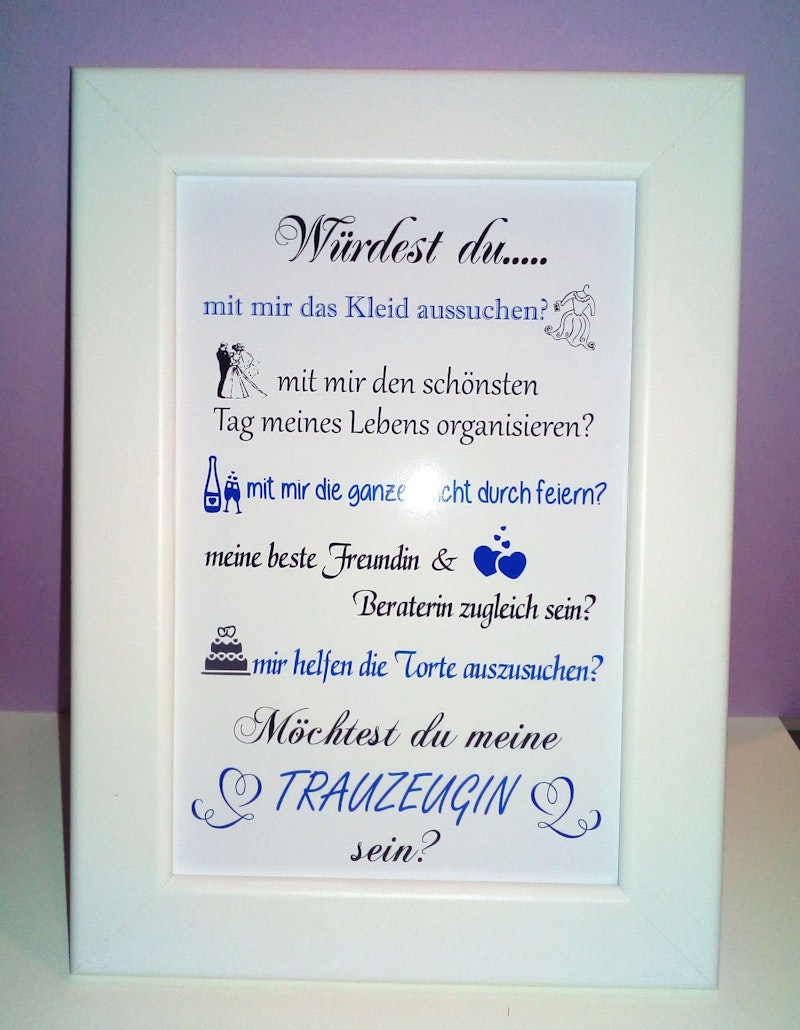 Würdest du.....
mit mir das Kleid aussuchen?
mit mir den schönsten
Tag meines Lebens organisieren?
mit mir die ganze durch feiern?
meine beste Freundin &
Beraterin zugleich sein?
mir helfen die Torte auszusuchen?
Möchtest du meine
TRAUZEUGIN
sein?